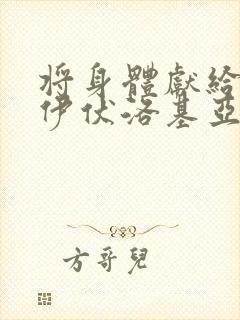 將身體獻給
伊伏洛基亞
方哥兒